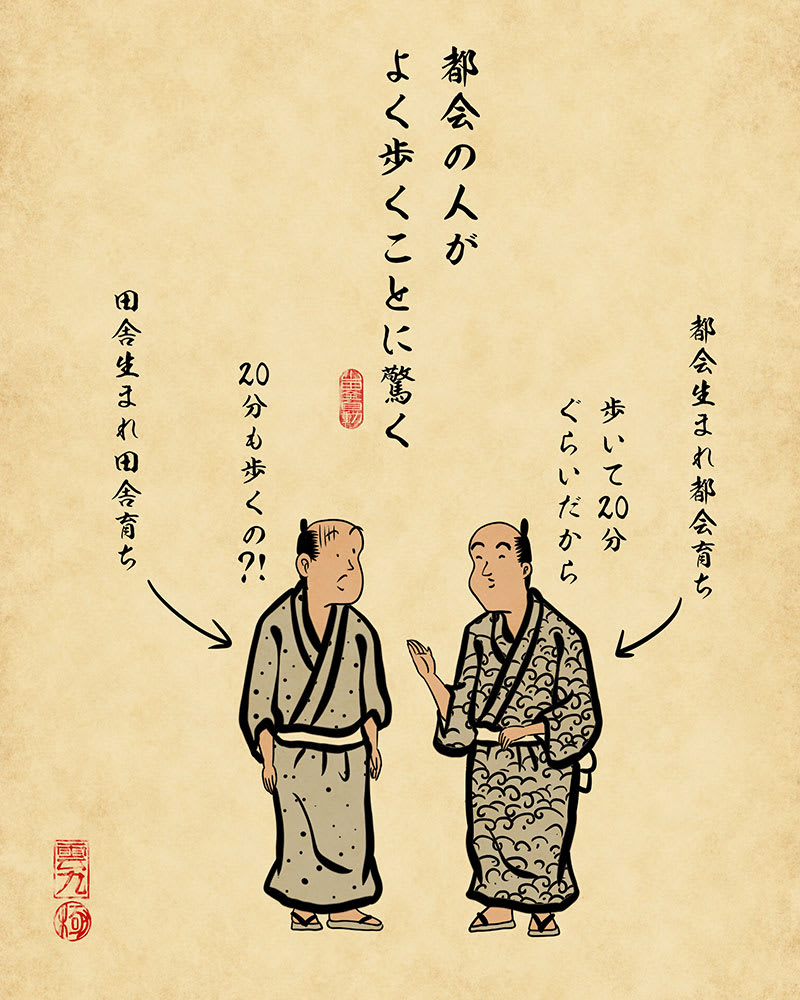 都会の人が
よく歩くことに驚く
都会生まれ都会育ち
歩いて20分
ぐらいだから
20分も歩くの?!
田舎生まれ田舎育ち